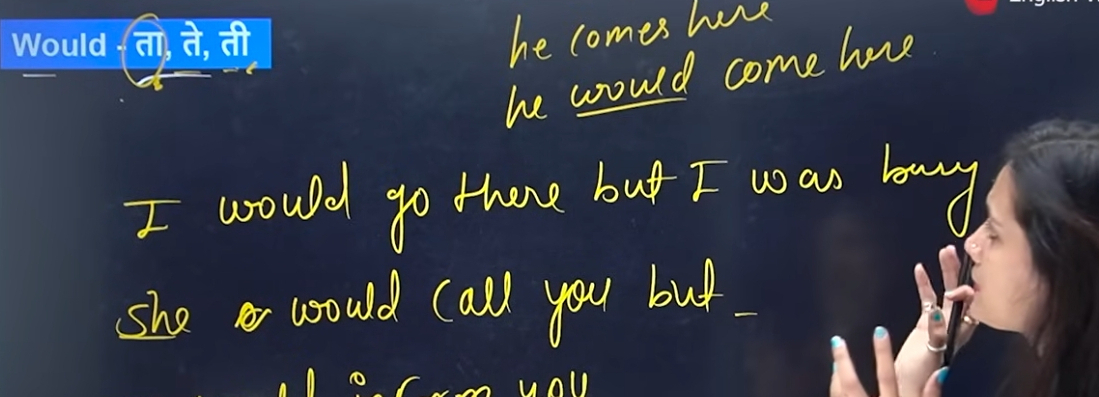 Would - ता, ते, ती
he comes here
he would come here
I would go there but I was busy
she would call you but _
you